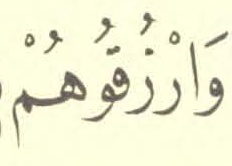 وَارْزُقُوهُمْ